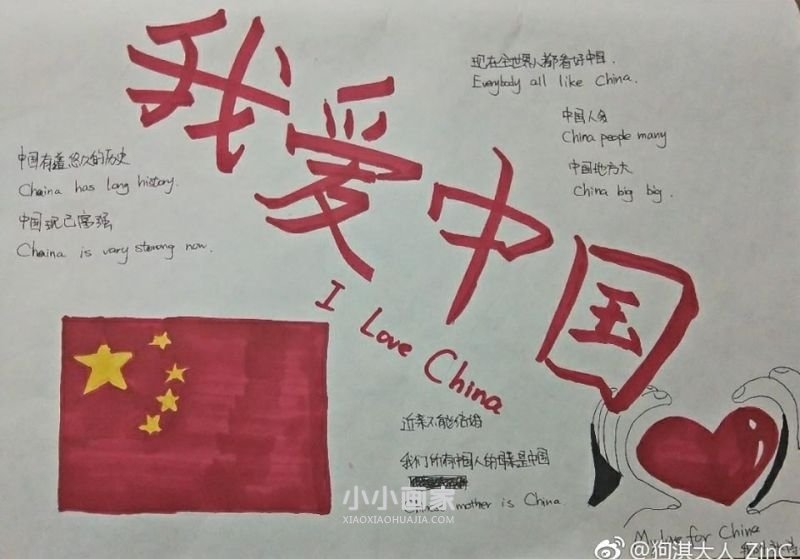 我爱中国
I Love China
现在全世界人都看好中国.
Everybody all like China.
中国人多
China people many
中国地方大
China big big.
中国有着悠久的历史
Chaina has long history.
中国现已富强
Chaina is vary sterong now.
近亲不能结婚
我们所有中国人的母亲是中国
mother is China.
My love for China
小小画家
XIAOXIAOHUAJIA.COM
@狗淇大人_ZinC